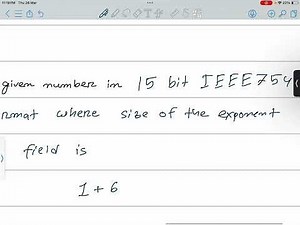 11:18 PM Thu 28 Mar
given number in 15 bit IEEE754
rmat where size of the exponent
field is
1 + 6